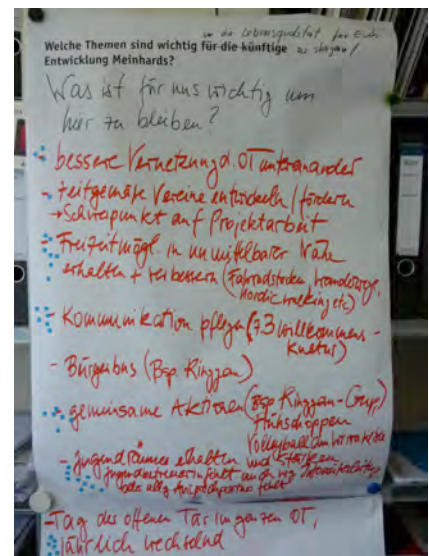 um die Lebensqualität für Euch
Welche Themen sind wichtig für die künftige zu steigern!
Entwicklung Meinhards?
Was ist für uns wichtig um
hier zu bleiben?
bessere Vernetzung d. OT untereinander
- zeitgemäße Vereine entwickeln / fördern
→ Schwerpunkt auf Projektarbeit
- Freizeitmögl. in unmittelbarer Nähe
erhalten + verbessern (Fahrradstrecken, Wanderwege,
Nordic walking etc)
- Kommunikation pflegen (z.B. Willkommens-
kultur)
- Bürgerbus (Bsp. Ringgau)
- gemeinsame Aktionen (Bsp Ringgau-Cup,)
Frühschoppen
Volleyball
- Jugendräume erhalten und stärken
Jugendbetreuer in fehlt auch
oder allg Ansprechpartner fehlt
- Tag der offenen Tür im ganzen OT,
jährlich wechselnd